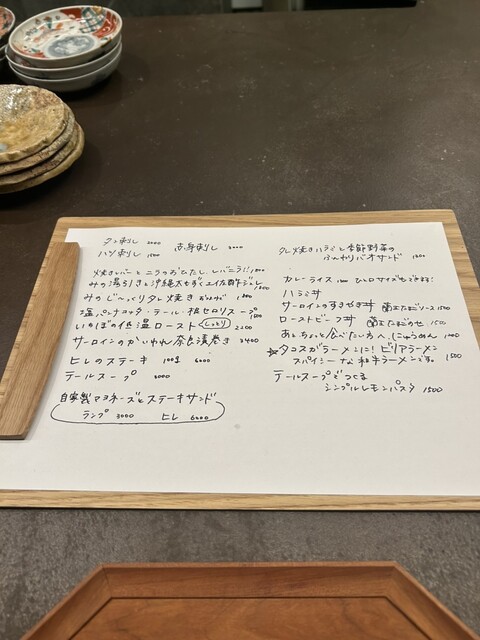 タン刺し 2000
ハツ刺し 1500
赤身刺し 2000
焼きレバーとニラのおひたし、レバニラ!! 1800
みの湯引きと沖縄太もずく土佐酢ジュレ 1800
みのじっくりタレ焼き 1800
塩パンチョッタ・テール・根セロリスープ 1500
いちぼの低温ロースト しっとり 2200
サーロインのかいわれ奈良漬巻き 2400
ヒレのステーキ
テールスープ 3000
自家製マヨネーズとステーキサンド
ランプ 3000 ヒレ 6000
タレ焼きハラミと季節野菜の
ふんわりバオサンド 1200
カレーライス ひと口サイズもできます!
ハラミ丼
サーロインのすきやき丼 菌王たまごソース 1500
ローストビーフ丼 菌王たまごのせ 1500
あとちょっと食べたい方へ、にゅうめん 1000
★タコスがラーメンに! ビリアラーメン
スパイシーな和牛ラーメンです。 1500
テールスープでつくる
シンプルレモンパスタ 1500